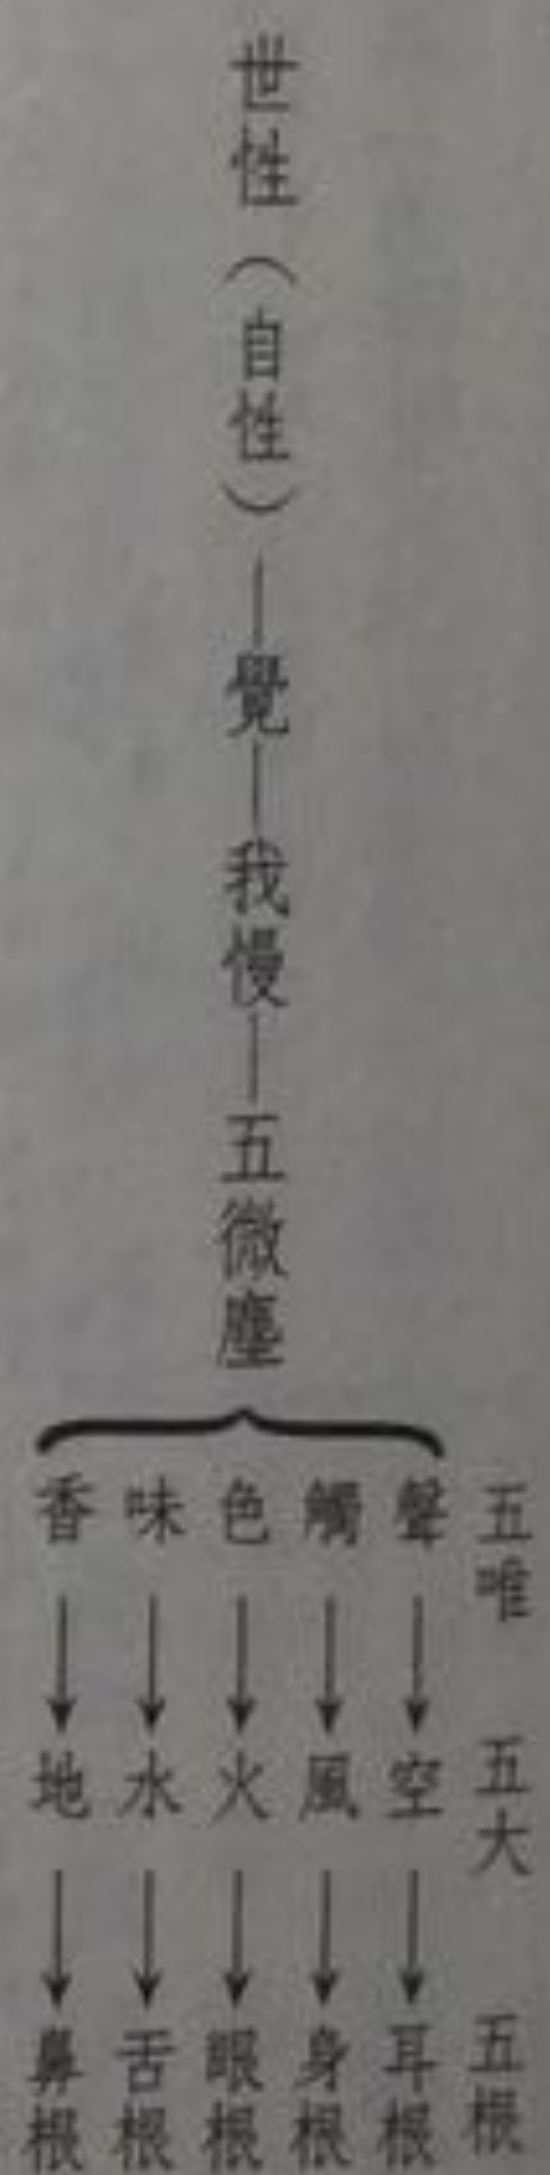 世性（自性）—覺—我慢—五微塵
五唯 五大 五根
聲 空 耳根
觸 風 身根
色 火 眼根
味 水 舌根
香 地 鼻根